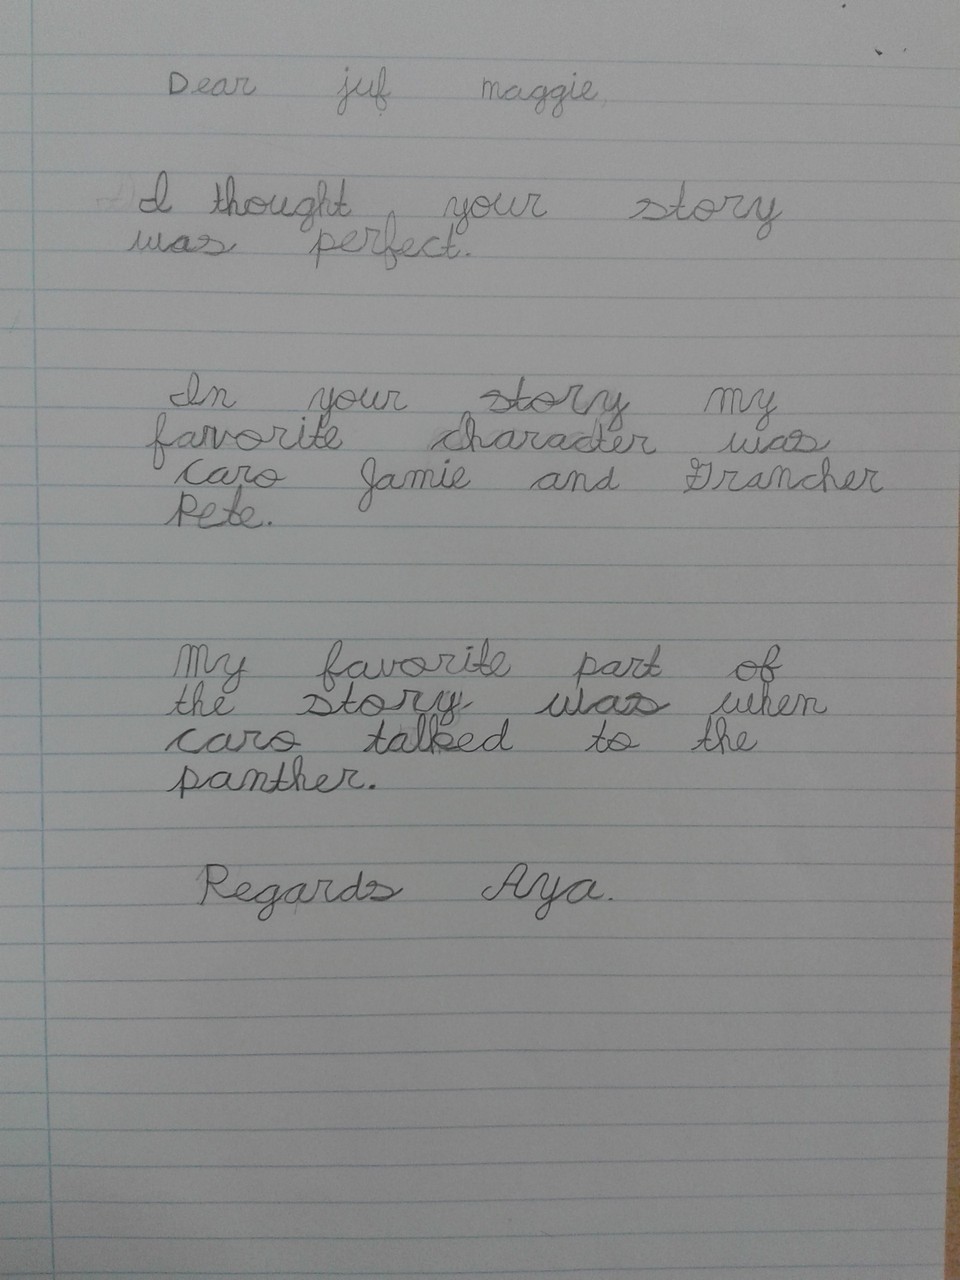 Dear juf maggie,
I thought your story
was perfect.
In your story my
favorite character was
caro Jamie and Grancher
Pete.
My favorite part of
the story was when
caro talked to the
panther.
Regards Aya.